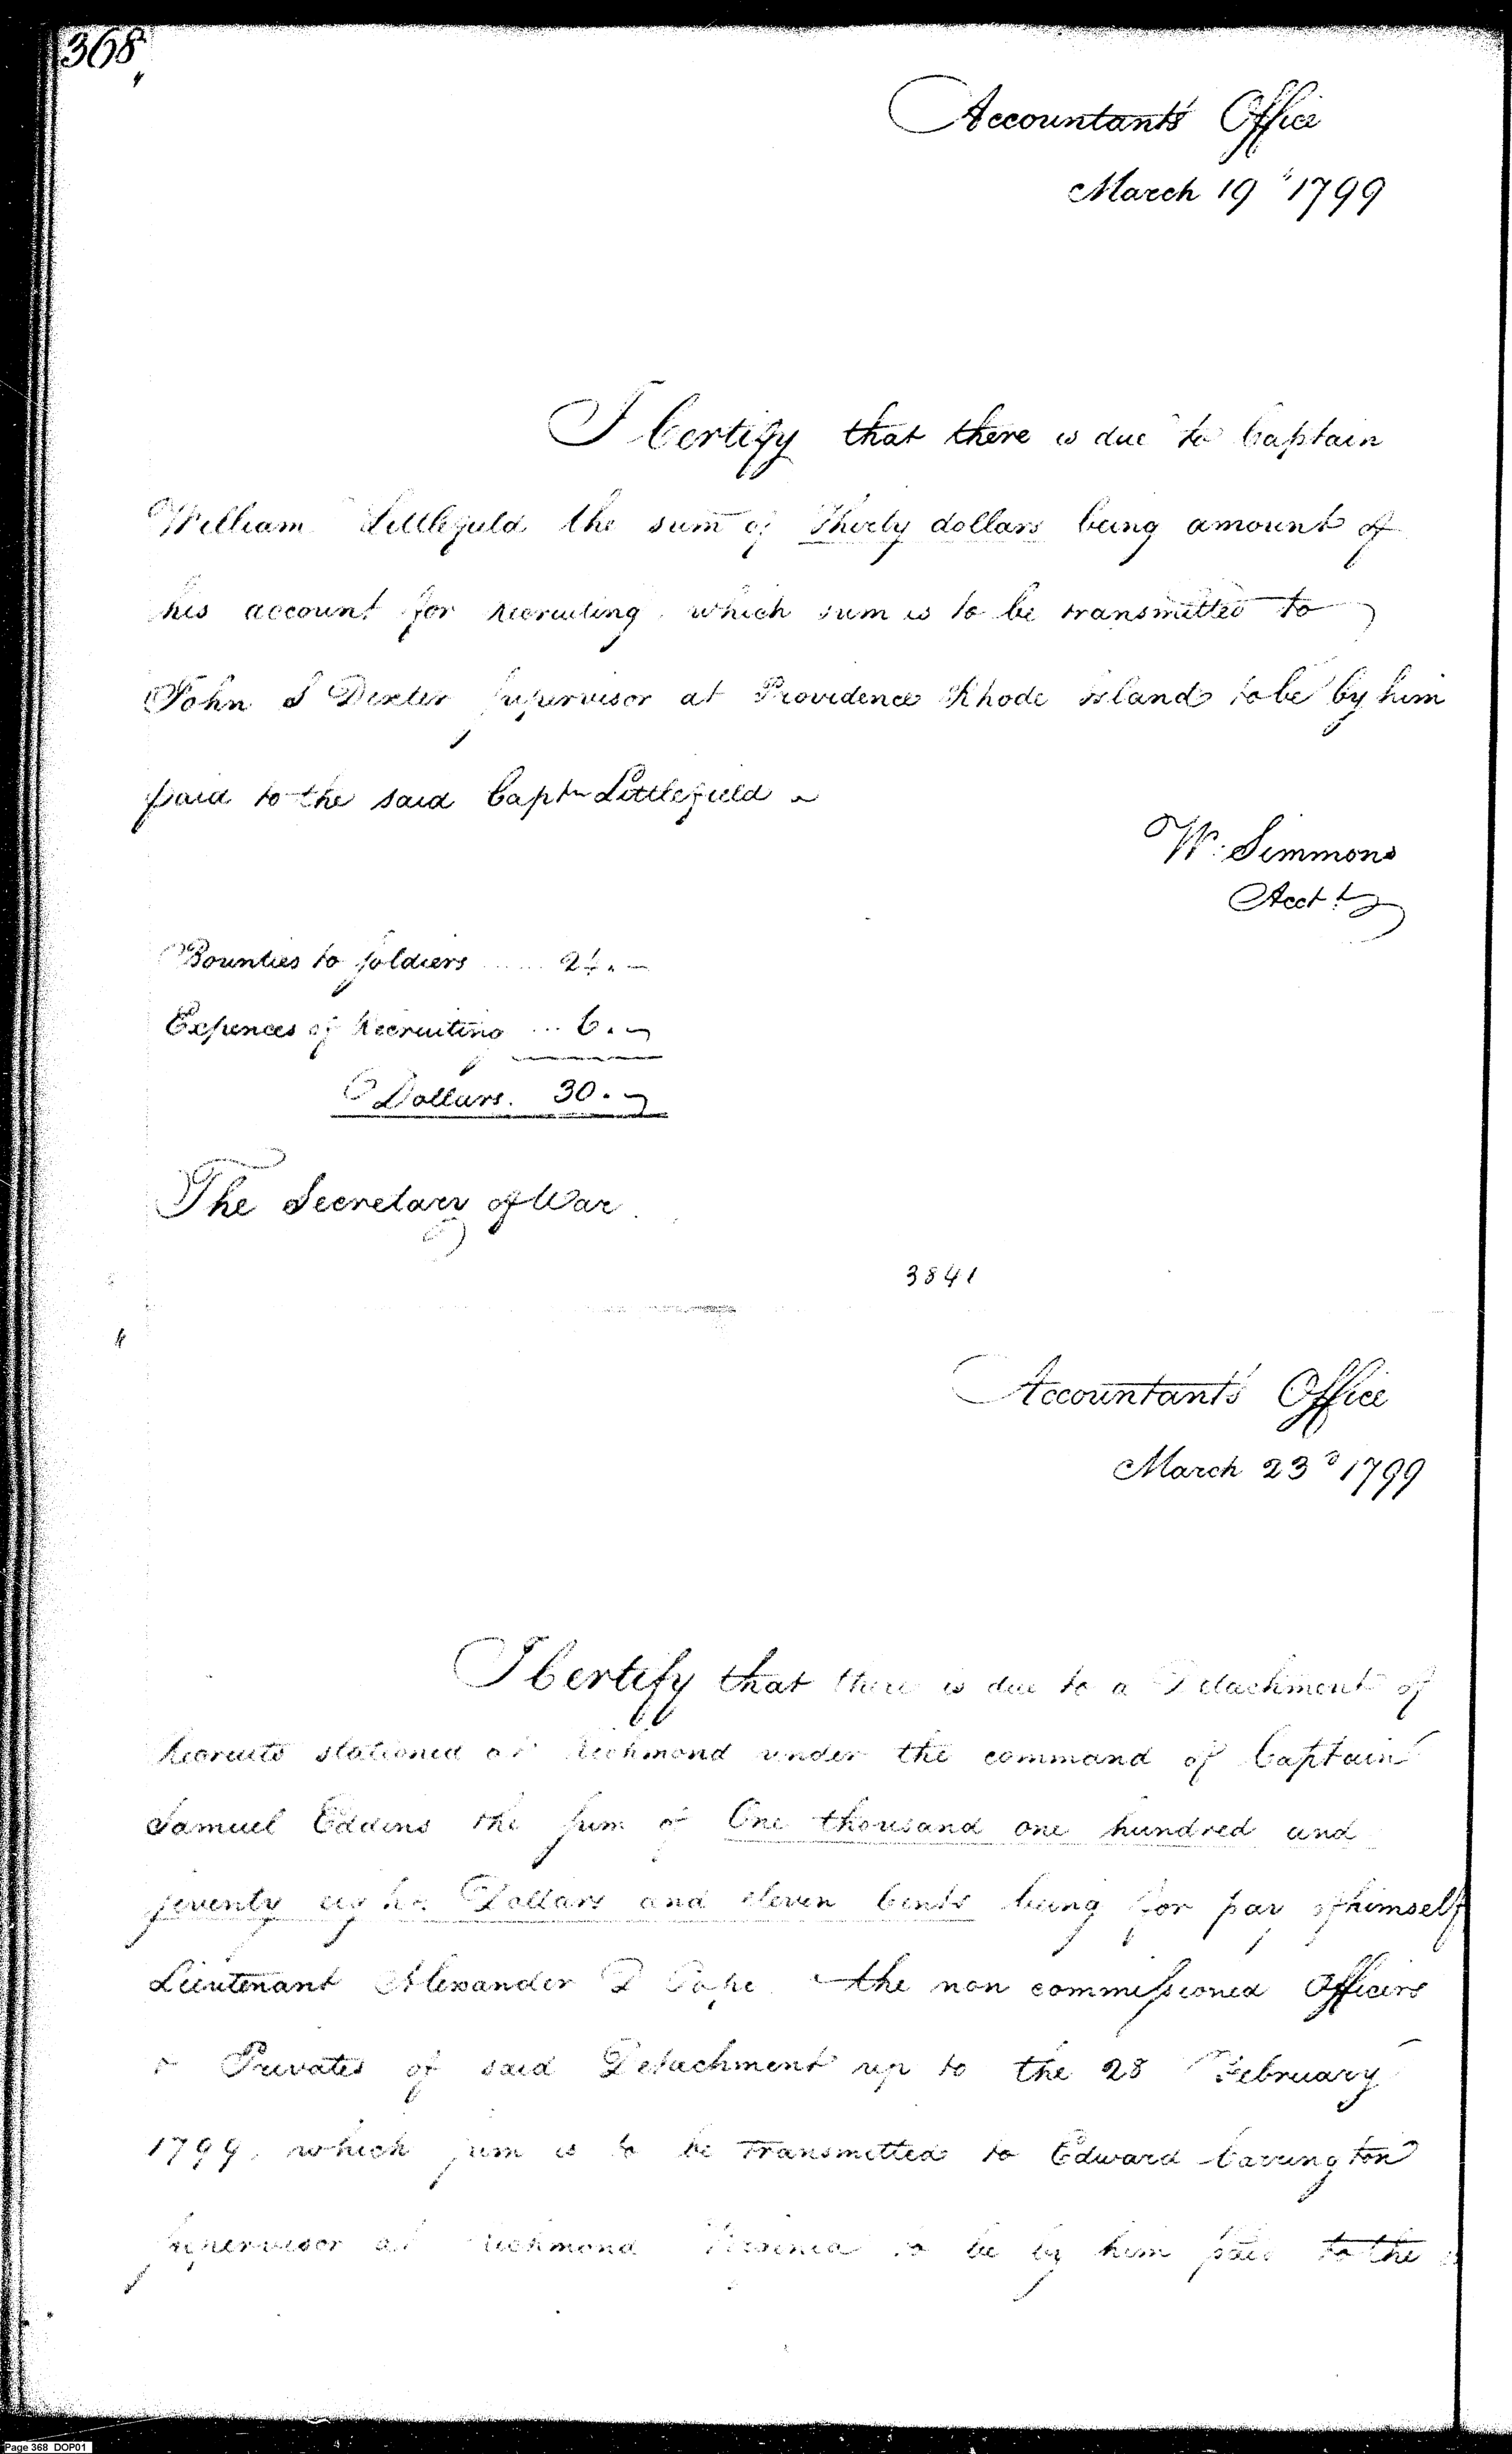 368
Accountant's Office
March 19th 1799
I Certify that there is due to Captain
William Littlefield the sum of Thirty dollars being amount of
his account for recruiting, which sum is to be transmitted to
John S Dexter Supervisor at Providence Rhode Island to be by him
paid to the said Captn Littlefield
W: Simmons
Acctt
Bounties to Soldiers ...... 24. -
Expences of Recruiting ... 6. -
Dollars. 30. -
The Secretary of War
3841
Accountant's Office
March 23d 1799
I Certify that there is due to a Detachment of
Recruits stationed at Richmond under the command of Captain
Samuel Eddins the sum of One thousand one hundred and
seventy eight Dollars and eleven Cents being for pay of himself
Lieutenant Alexander D Pope the non commissioned Officers
& Privates of said Detachment up to the 28 February
1799, which sum is to be transmitted to Edward Carrington
Supervisor at Richmond Virginia to be by him paid to the
Page 368 DOP01